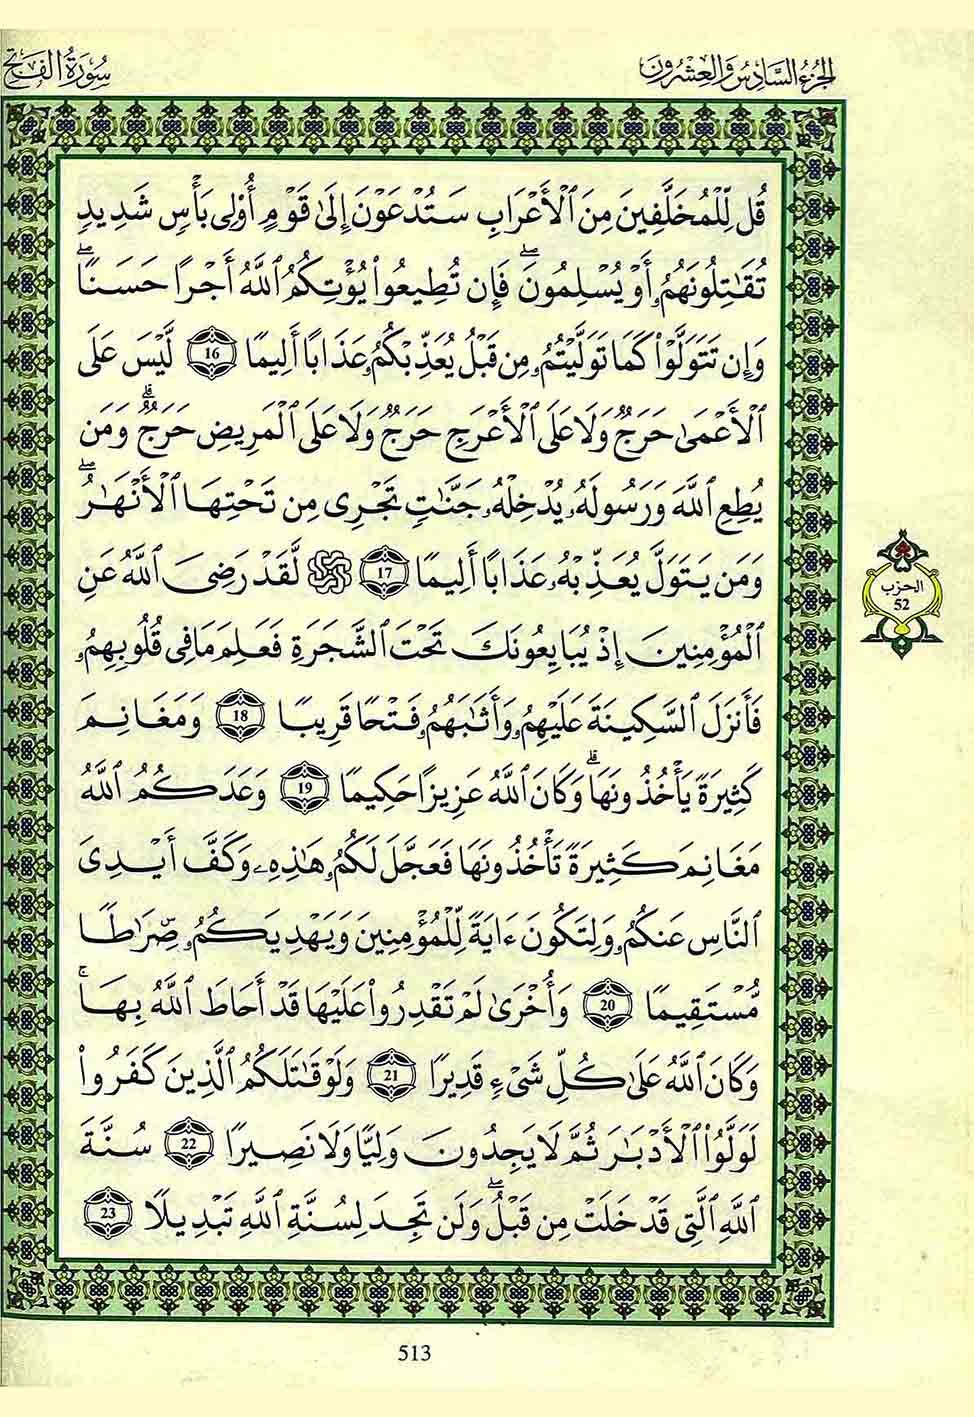 الجزء السادس والعشرون
سورة الفتح
قُل لِّلْمُخَلَّفِينَ مِنَ ٱلْأَعْرَابِ سَتُدْعَوْنَ إِلَىٰ قَوْمٍ أُوْلِى بَأْسٍ شَدِيدٍ
تُقَٰتِلُونَهُمُۥٓ أَوْ يُسْلِمُونَۖ فَإِن تُطِيعُوا۟ يُؤْتِكُمُ ٱللَّهُ أَجْرًا حَسَنًاۖ
وَإِن تَتَوَلَّوْا۟ كَمَا تَوَلَّيْتُمُۥ مِن قَبْلُ يُعَذِّبْكُمُۥ عَذَابًا أَلِيمًا 16 لَّيْسَ عَلَى
ٱلْأَعْمَىٰ حَرَجٌ وَلَا عَلَى ٱلْأَعْرَجِ حَرَجٌ وَلَا عَلَى ٱلْمَرِيضِ حَرَجٌۗ وَمَن
يُطِعِ ٱللَّهَ وَرَسُولَهُۥ يُدْخِلْهُۥ جَنَّٰتٍ تَجْرِى مِن تَحْتِهَا ٱلْأَنْهَٰرُۖ
وَمَن يَتَوَلَّ يُعَذِّبْهُۥ عَذَابًا أَلِيمًا 17 ۞ لَّقَدْ رَضِىَ ٱللَّهُ عَنِ
ٱلْمُؤْمِنِينَ إِذْ يُبَايِعُونَكَ تَحْتَ ٱلشَّجَرَةِ فَعَلِمَ مَا فِى قُلُوبِهِمُۥ
فَأَنزَلَ ٱلسَّكِينَةَ عَلَيْهِمُۥ وَأَثَٰبَهُمُۥ فَتْحًا قَرِيبًا 18 وَمَغَانِمَ
كَثِيرَةً يَأْخُذُونَهَاۗ وَكَانَ ٱللَّهُ عَزِيزًا حَكِيمًا 19 وَعَدَكُمُ ٱللَّهُ
مَغَانِمَ كَثِيرَةً تَأْخُذُونَهَا فَعَجَّلَ لَكُمُۥ هَٰذِهِۦ وَكَفَّ أَيْدِىَ
ٱلنَّاسِ عَنكُمُۥ وَلِتَكُونَ ءَايَةً لِّلْمُؤْمِنِينَ وَيَهْدِيَكُمُۥ صِرَٰطًا
مُّسْتَقِيمًا 20 وَأُخْرَىٰ لَمْ تَقْدِرُوا۟ عَلَيْهَا قَدْ أَحَاطَ ٱللَّهُ بِهَاۚ
وَكَانَ ٱللَّهُ عَلَىٰ كُلِّ شَىْءٍ قَدِيرًا 21 وَلَوْ قَٰتَلَكُمُ ٱلَّذِينَ كَفَرُوا۟
لَوَلَّوُا۟ ٱلْأَدْبَٰرَ ثُمَّ لَا يَجِدُونَ وَلِيًّا وَلَا نَصِيرًا 22 سُنَّةَ
ٱللَّهِ ٱلَّتِى قَدْ خَلَتْ مِن قَبْلُۖ وَلَن تَجِدَ لِسُنَّةِ ٱللَّهِ تَبْدِيلًا 23
الحزب
52
513